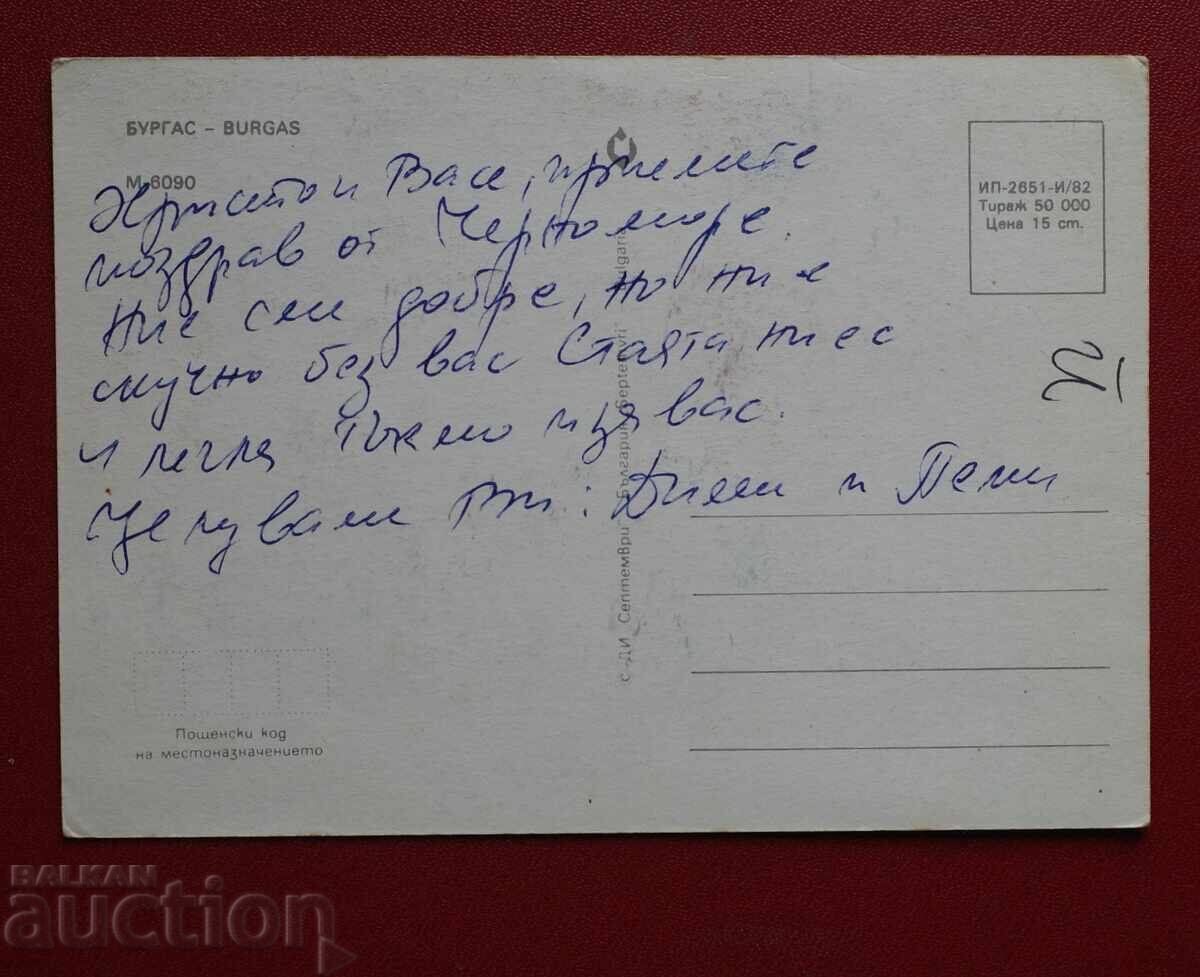 БУРГАС – BURGAS
М 6090
Христо и Васе, приемете
поздрав от Черноморе.
Ние сме добре, но ни е
скучно без вас Стаята ни е с
4 легла тъкмо и за вас.
Целуваме Ви: Дими и Пепи
ИП-2651-И/82
Тираж 50 000
Цена 15 ст.
с ДИ „Септември
Пощенски код
на местоназначението
BALKAN
auction